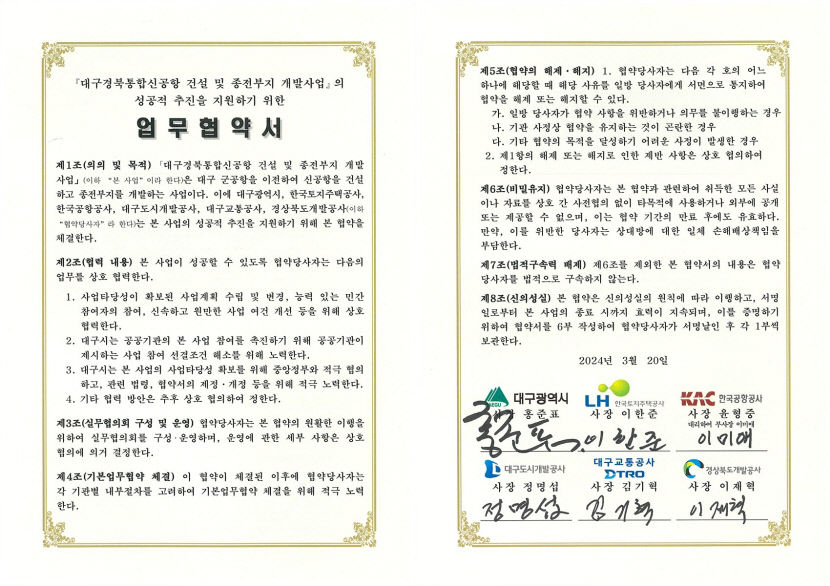 『대구경북통합신공항 건설 및 종전부지 개발사업』의
성공적 추진을 지원하기 위한
업무협약서
제1조(의의 및 목적) 「대구경북통합신공항 건설 및 종전부지 개발
사업」(이하 "본 사업"이라 한다)은 대구 군공항을 이전하여 신공항을 건설
하고 종전부지를 개발하는 사업이다. 이에 대구광역시, 한국토지주택공사,
한국공항공사, 대구도시개발공사, 대구교통공사, 경상북도개발공사(이하
"협약당사자"라 한다)는 본 사업의 성공적 추진을 지원하기 위해 본 협약을
체결한다.
제2조(협력 내용) 본 사업이 성공할 수 있도록 협약당사자는 다음의
업무를 상호 협력한다.
1. 사업타당성이 확보된 사업계획 수립 및 변경, 능력 있는 민간
참여자의 참여, 신속하고 원만한 사업 여건 개선 등을 위해 상호
협력한다.
2. 대구시는 공공기관의 본 사업 참여를 촉진하기 위해 공공기관이
제시하는 사업 참여 선결조건 해소를 위해 노력한다.
3. 대구시는 본 사업의 사업타당성 확보를 위해 중앙정부와 적극 협의
하고, 관련 법령, 협약서의 제정·개정 등을 위해 적극 노력한다.
4. 기타 협력 방안은 추후 상호 협의하여 정한다.
제3조(실무협의회 구성 및 운영) 협약당사자는 본 협약의 원활한 이행을
위하여 실무협의회를 구성·운영하며, 운영에 관한 세부 사항은 상호
협의에 의거 결정한다.
제4조(기본업무협약 체결) 이 협약이 체결된 이후에 협약당사자는
각 기관별 내부절차를 고려하여 기본업무협약 체결을 위해 적극 노력
한다.
제5조(협약의 해제·해지) 1. 협약당사자는 다음 각 호의 어느
하나에 해당할 때 해당 사유를 일방 당사자에게 서면으로 통지하여
협약을 해제 또는 해지할 수 있다.
가. 일방 당사자가 협약 사항을 위반하거나 의무를 불이행하는 경우
나. 기관 사정상 협약을 유지하는 것이 곤란한 경우
다. 기타 협약의 목적을 달성하기 어려운 사정이 발생한 경우
2. 제1항의 해제 또는 해지로 인한 제반 사항은 상호 협의하여
정한다.
제6조(비밀유지) 협약당사자는 본 협약과 관련하여 취득한 모든 사실
이나 자료를 상호 간 사전협의 없이 타목적에 사용하거나 외부에 공개
또는 제공할 수 없으며, 이는 협약 기간의 만료 후에도 유효하다.
만약, 이를 위반한 당사자는 상대방에 대한 일체 손해배상책임을
부담한다.
제7조(법적구속력 배제) 제6조를 제외한 본 협약서의 내용은 협약
당사자를 법적으로 구속하지 않는다.
제8조(신의성실) 본 협약은 신의성실의 원칙에 따라 이행하고, 서명
일로부터 본 사업의 종료 시까지 효력이 지속되며, 이를 증명하기
위하여 협약서를 6부 작성하여 협약당사자가 서명날인 후 각 1부씩
보관한다.
2024년 3월 20일
대구광역시 LH 한국토지주택공사 KAC 한국공항공사
시장 홍준표 사장 이한준 사장 윤형중
대리하여 부사장 이미애
홍준표 이한준 이미애
대구도시개발공사 대구교통공사 DTRO 경상북도개발공사
사장 정명섭 사장 김기혁 사장 이재혁
정명섭 김기혁 이재혁